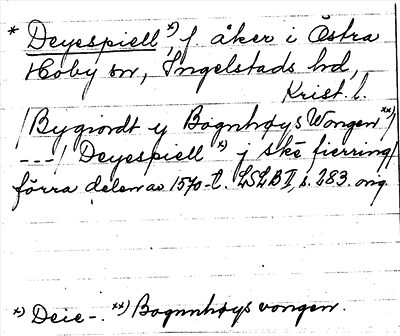 * Deyespiell *) f. åker i Östra
Hoby sn, Ingelstads hd,
Krist. l.
/Bygiordt y Bognhøys Wongen **)/
---/ Deyespiell *) j ske fierring/
förra delen av 1570-t. LSLB II, s. 283. orig.
*) Deie-. **) Bognnhøys vongen.